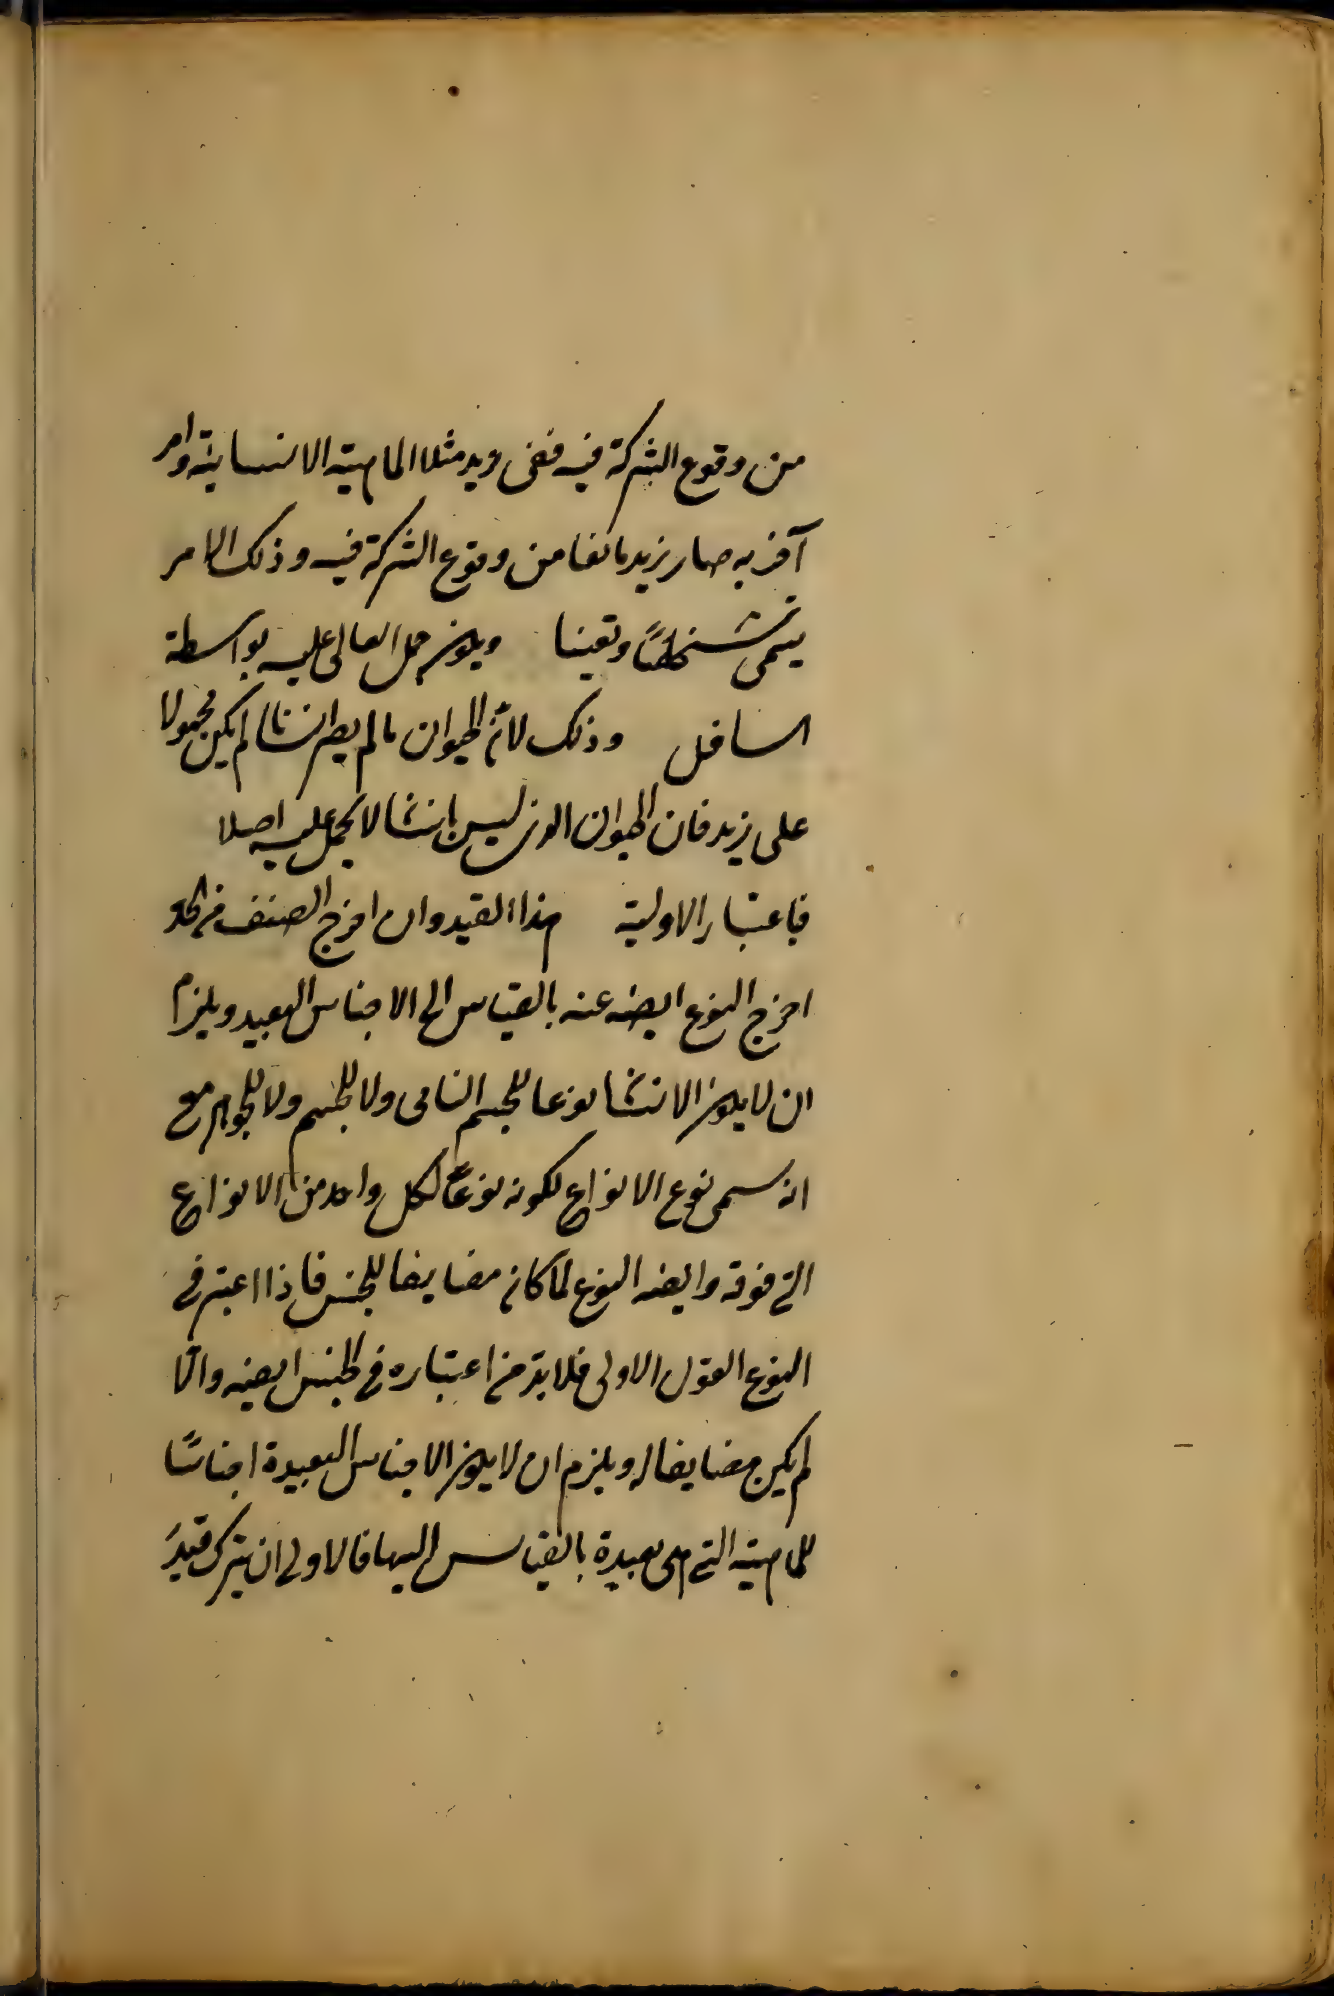 من وقوع الشركة فيه ففى زيد مثلا الماهية الانسانية وامر
آخر به صار زيد مانعا من وقوع الشركة فيه وذلك الامر
يسمى تشخصًا وتعينا ويكون حمل العالى عليه بواسطة
السافل وذلك لانّ الحيوان مالم يصر انسانا لم يكن محمولا
على زيد فان الحيوان الذى ليس بانسان لا يحمل عليه اصلا
فباعتبار الاولية هذا القيد وان اخرج الصنف من الحد
اخرج النوع ايضه عنه بالقياس الى الاجناس البعيد ويلزم
ان لا يكون الانسان نوعا للجسم النامى ولا للجسم ولا للجوهر مع
انه سمى نوع الانواع لكونه نوعًا لكل واحد من الانواع
التى فوقه وايضه النوع لما كان مضايفا للجنس فاذا اعتبر فى
النوع القول الاولى فلا بدّ من اعتباره فى الجنس ايضه والّا
لم يكن مضايفا له ويلزم ان لا يكون الاجناس البعيدة اجناسًا
للماهية التى هى بعيدة بالقياس اليها فالاولى ان يترك قيد